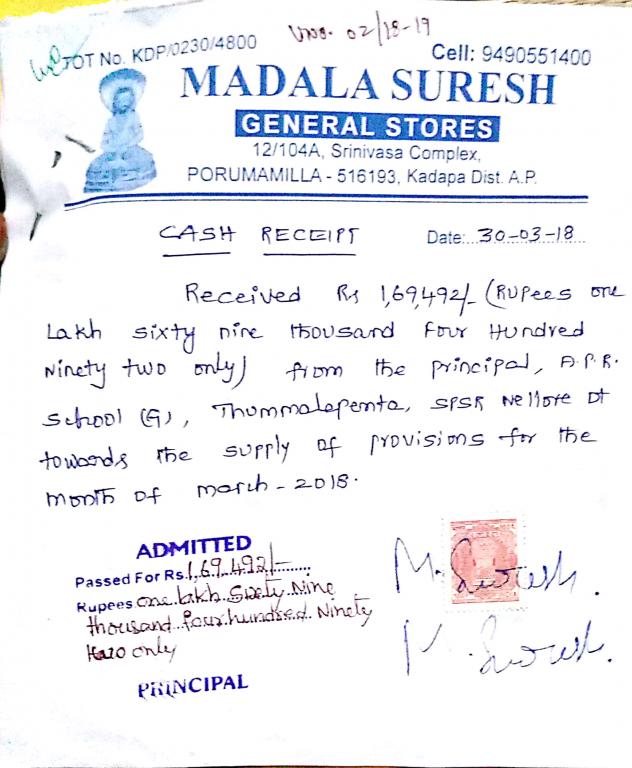 TOT No. KDP/0230/4800
VNo. 02/18-19
Cell: 9490551400
MADALA SURESH
GENERAL STORES
12/104A, Srinivasa Complex,
PORUMAMILLA - 516193, Kadapa Dist. A.P.
CASH RECEIPT
Date: 30-03-18
Received Rs 1,69,492/- (Rupees one
Lakh sixty nine thousand Four Hundred
Ninety two only) from the principal, A.P.R.
School (G), Thummalapenta, SPSR Nellore Dt
towards the supply of provisions for the
month of march-2018.
ADMITTED
Passed For Rs. 1,69,492/-
Rupees one lakh Sixty Nine
thousand four hundred Ninety
two only
PRINCIPAL
M. Suresh.
M. Suresh.